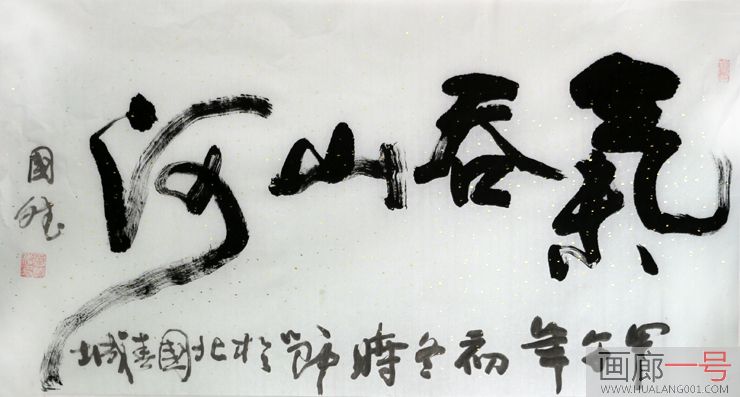 氣吞山河
甲午年初冬時節於北國春城
國
画廊一号
WWW.HUALANG001.COM